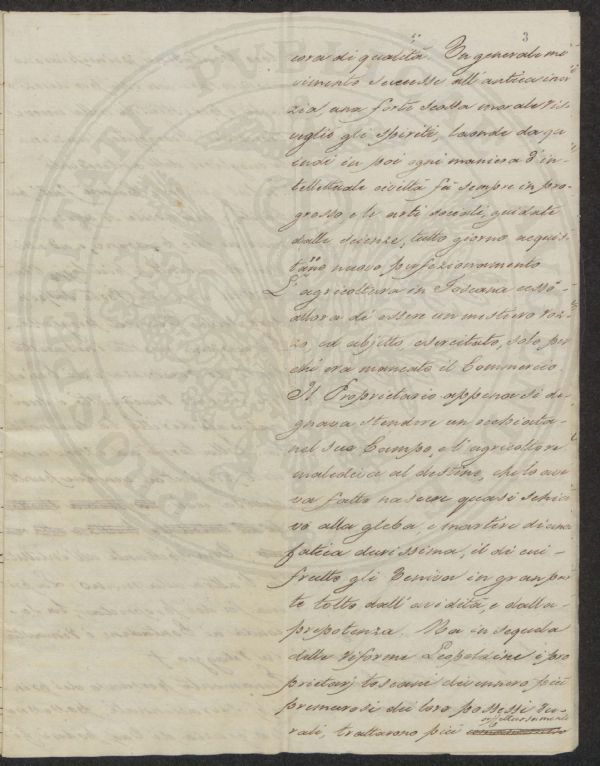 3
cora di qualità. Un generale mo
vimento successe all'antica iner
zia, una forte scossa morale ri
svegliò gli spiriti, laonde da qu
indi in poi ogni maniera d'in-
tellettuale civiltà fù sempre in pro-
gresso e le arti sociali, guidate
dalle scienze, tutto giorno acquis
tano nuovo perfezionamento
L'agricoltura in Toscana cessò
allora di essere un mestiero roz-
zo, ed abjetto esercitato, solo per
chi era mancato il Commercio.
Il Proprietario appena si de
gnava stendere un occhiata
nel suo Campo, e l'agricoltore
malediva al destino, che lo ave
va fatto nascere quasi schia
vo alla gleba, e martire di una
fatica durissima, il di cui
frutto gli veniva in gran par
te tolto dall'avidità, e dalla
prepotenza. Ma in seguela
delle riforme Leopoldine i pro
prietarj toscani divennero più
premurosi dei loro possessi ru
rali, trattarono più